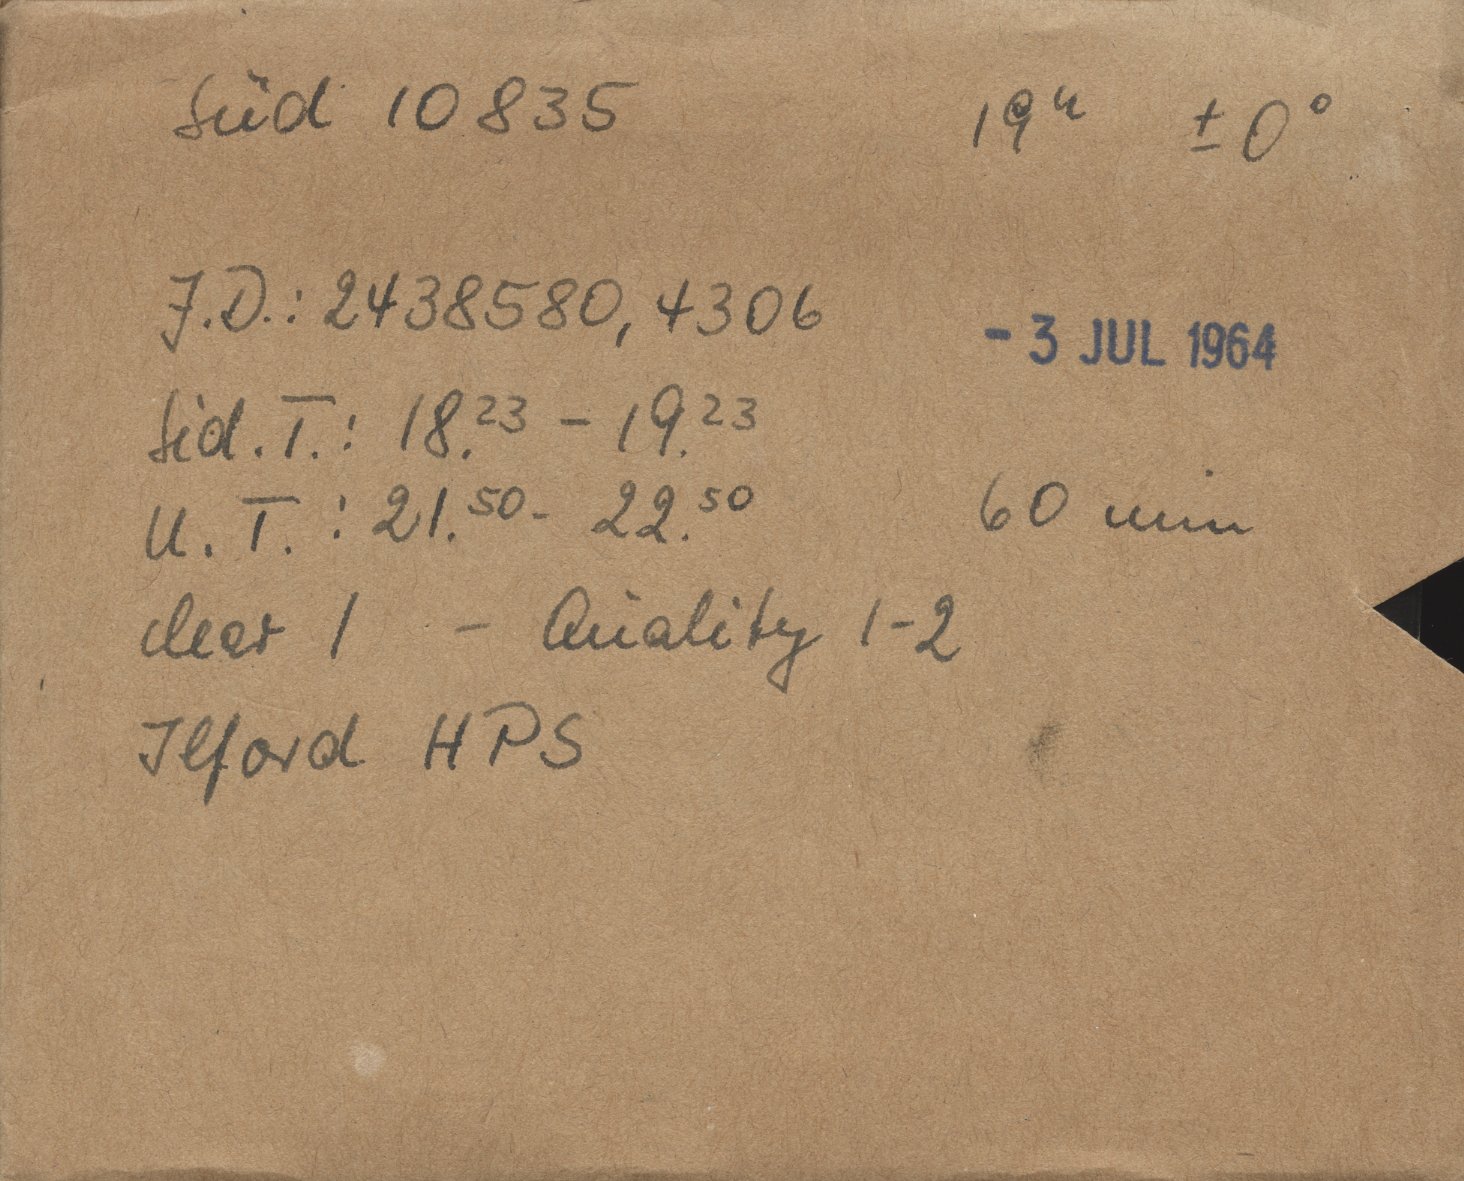 Süd 10835 19ʰ ±0°
J.D.: 2438580,4306
- 3 JUL 1964
Sid.T.: 18.²³ – 19.²³
U.T.: 21.⁵⁰- 22.⁵⁰ 60 min
clear 1 - Quality 1-2
Ilford HPS